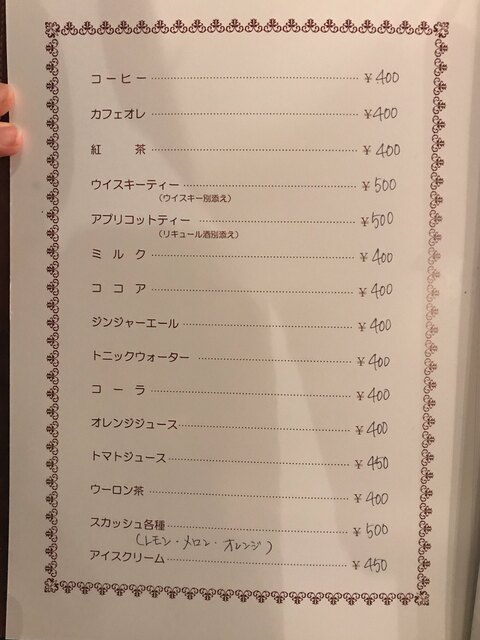 コーヒー ¥400
カフェオレ ¥400
紅茶 ¥400
ウイスキーティー ¥500
(ウイスキー別添え)
アプリコットティー ¥500
(リキュール酒別添え)
ミルク ¥400
ココア ¥400
ジンジャーエール ¥400
トニックウォーター ¥400
コーラ ¥400
オレンジジュース ¥400
トマトジュース ¥450
ウーロン茶 ¥400
スカッシュ各種 ¥500
(レモン・メロン・オレンジ)
アイスクリーム ¥450